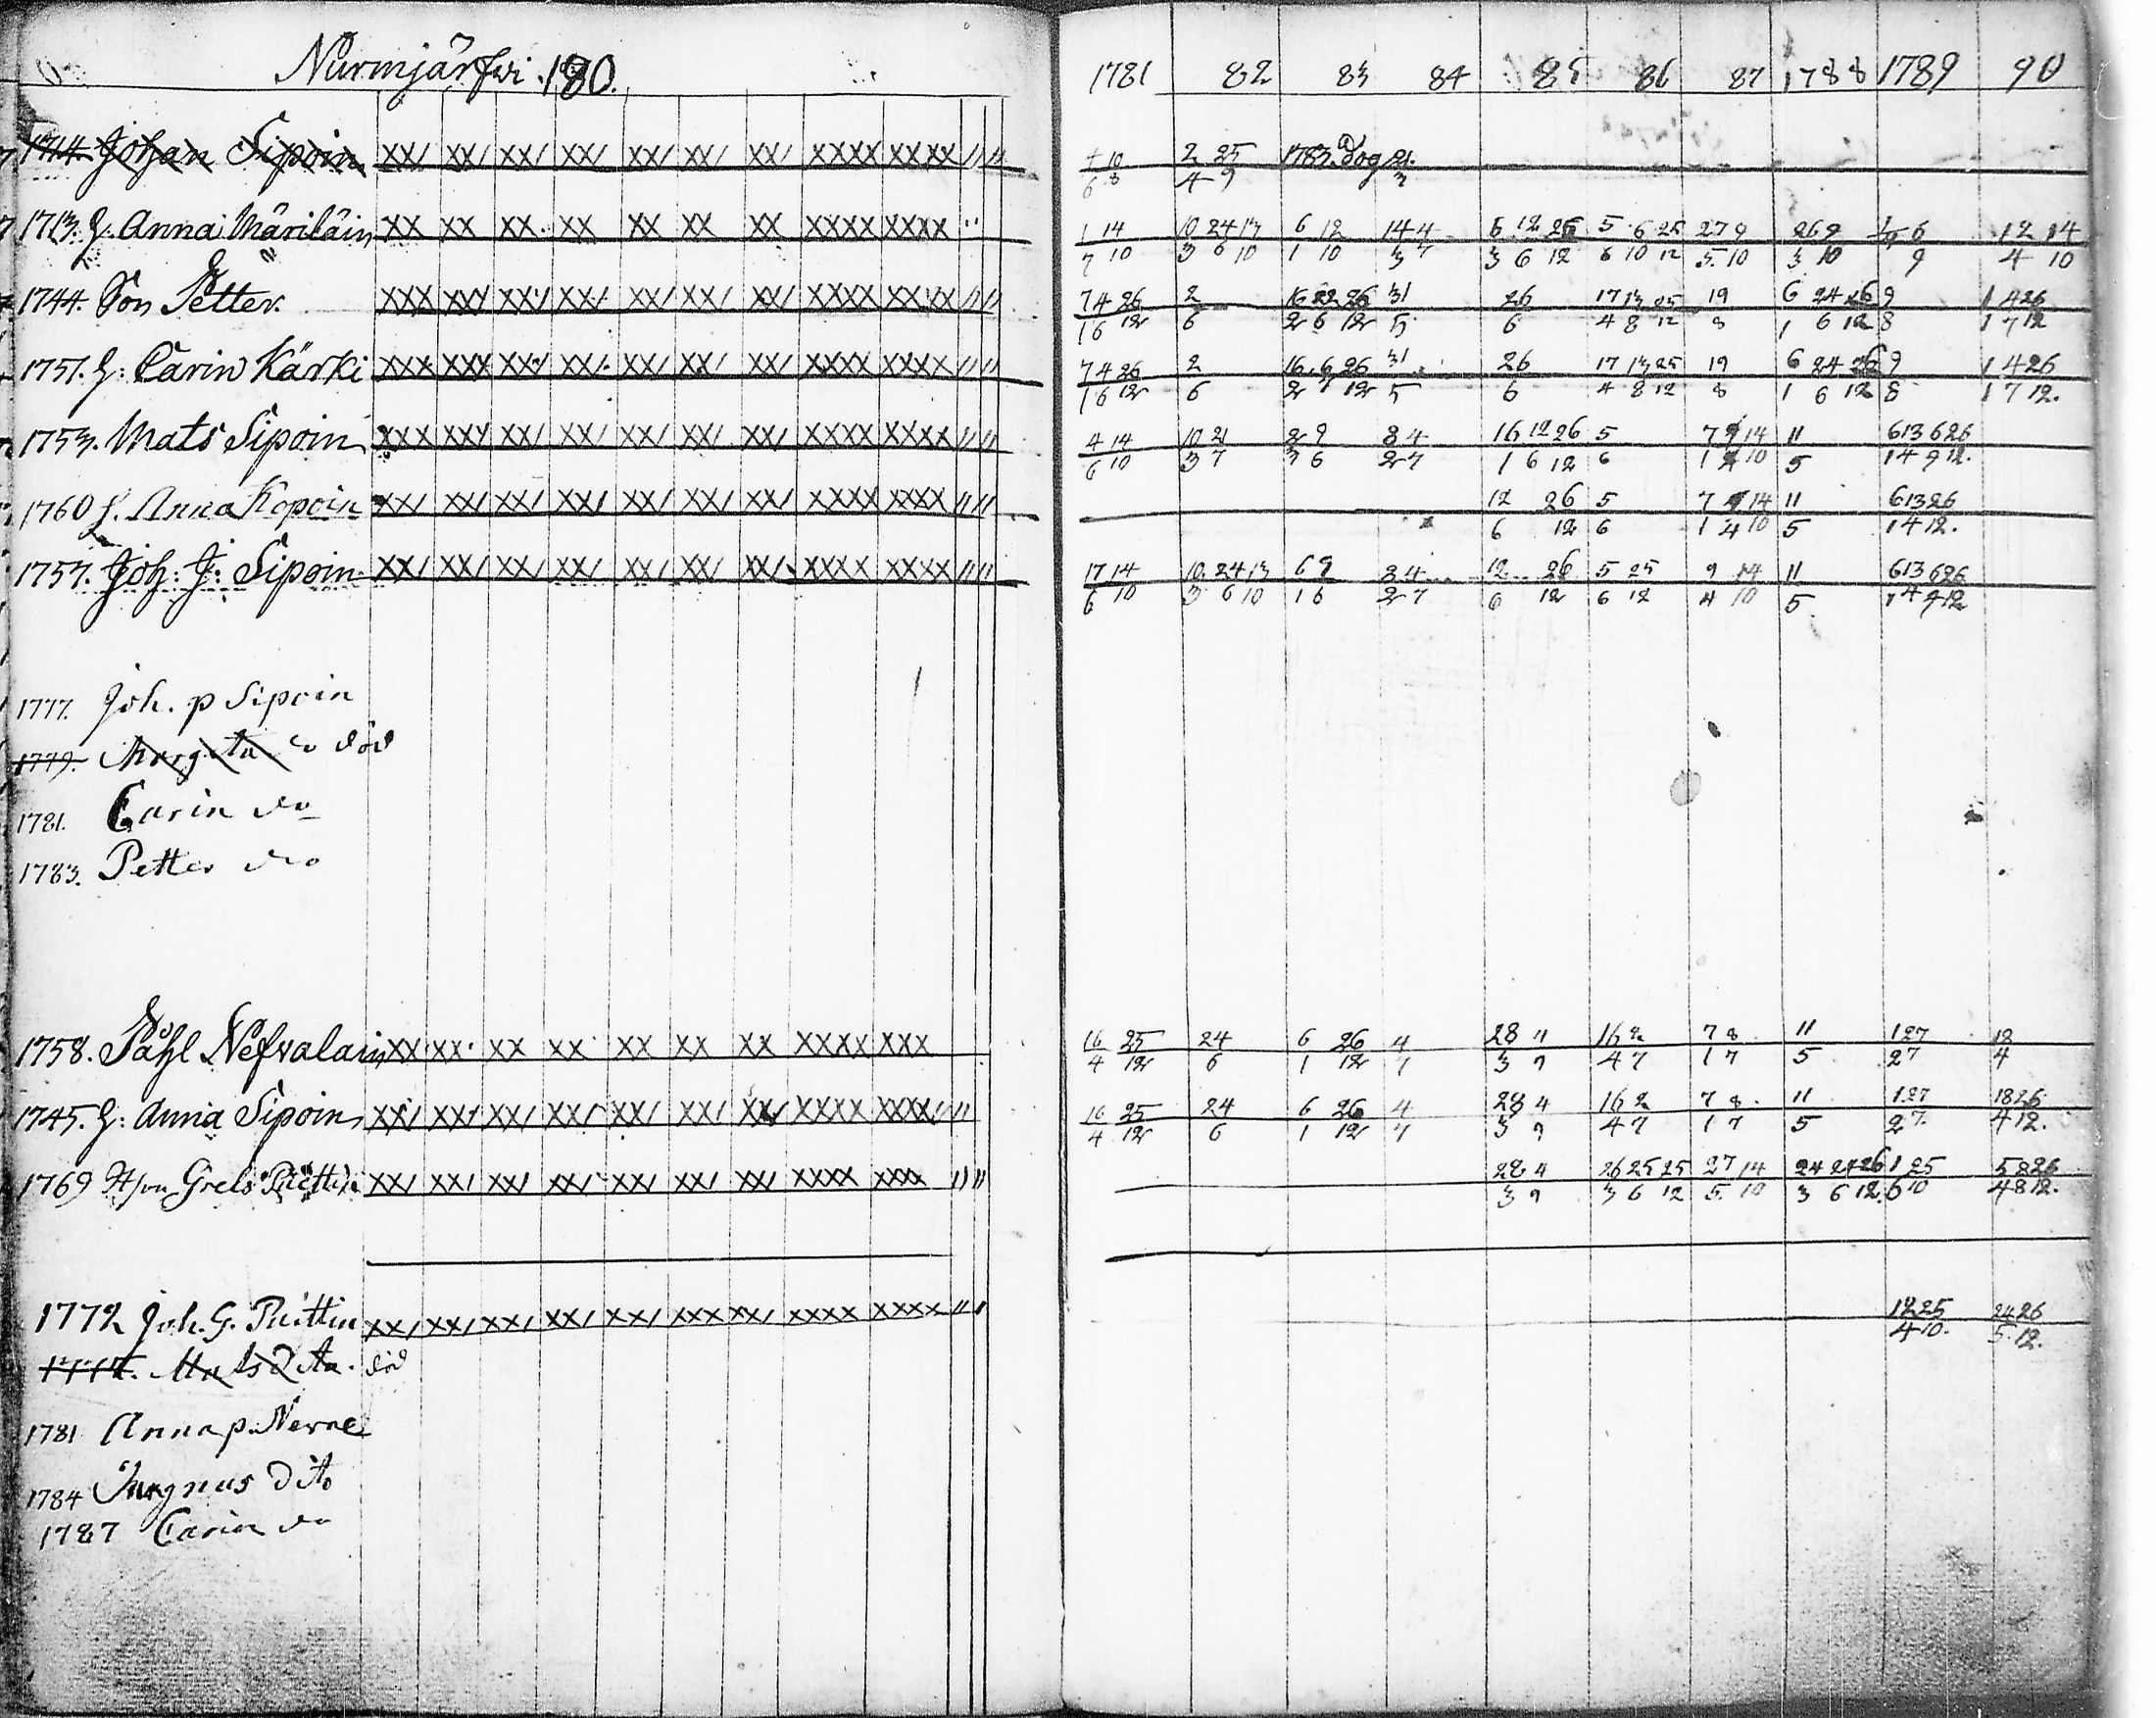 Nurmjärfwi. 180.
1781 82 83 84 85 86 87 1788 1789 90
1714. Johan Sipoin XX/ XX/ XX/ XX/ XX/ XX/ XX/ XXXX XXXX 2/4 25/9 1783. Dog 21/3
1713. H. Anna Märiläin XX XX XX XX XX XX XX XXXX XXXX 1/7 14/10 10/3 24/6 13/10 6/1 12/10 14/3 4/7 6/3 12/6 26/12 5/6 6/10 25/12 27/5 9/10 26/3 9/10 6/9 12/4 14/10
1744. Son Petter. XXX XX/ XX/ XX/ XX/ XX/ XX/ XXXX XXXX 7/1 4/6 26/12 2/6 16/2 22/6 26/12 31/5 26/6 17/4 13/8 25/12 19/8 6/1 24/6 26/12 9/8 1/1 4/7 26/12
1751. H: Carin Kärki XXX XXX XX/ XX/ XX/ XX/ XX/ XXXX XXXX 7/1 4/6 26/12 2/6 16/2 6/7 26/12 31/5 26/6 17/4 13/8 25/12 19/8 6/1 24/6 26/12 9/8 1/1 4/7 26/12.
1753. Mats Sipoin XXX XXX XX/ XX/ XX/ XX/ XX/ XXXX XXXX 4/6 14/10 10/3 21/7 2/3 9/6 8/2 4/7 16/1 12/6 26/12 5/6 7/1 9/4 14/10 11/5 6/1 13/4 6/9 26/12.
1760 H. Anna Kopoin XX/ XX/ XX/ XX/ XX/ XX/ XX/ XXXX XXXX 12/6 26/12 5/6 7/1 9/4 14/10 11/5 6/1 13/4 26/12.
1757. Joh: J: Sipoin XX/ XX/ XX/ XX/ XX/ XX/ XX/ XXXX XXXX 17/6 14/10 10/3 24/6 13/10 6/1 9/6 8/2 4/7 12/6 26/12 5/6 25/12 9/4 14/10 11/5 6/1 13/4 6/9 26/12
1777. Joh. p Sipoin
1779. Margeta do död
1781. Carin do
1783. Petter do
1758. Påhl Nefvalain XX XX XX XX XX XX XX XXXX XXX 16/4 25/12 24/6 6/1 26/12 4/7 28/3 4/9 16/4 2/7 7/1 8/7 11/5 1/2 27/7 12/4
1745. H: Anna Sipoin XX/ XX/ XX/ XX/ XX/ XX/ XX/ XXXX XXXX 16/4 25/12 24/6 6/1 26/12 4/7 28/3 4/9 16/4 2/7 7/1 8/7 11/5 1/2 27/7. 18/4 26/12.
1769 Grels Puittin XX/ XX/ XX/ XX/ XX/ XX/ XX/ XXXX XXXX 28/3 4/9 26/3 25/6 25/12 27/5 14/10 24/3 24/6 26/12 1/6 25/10 5/4 8/8 26/12.
1772 Joh. G. Puittin XX/ XX/ XX/ XX/ XX/ XXX XX/ XXXX XXXX 12/4 25/10. 24/5 26/12.
Mats Dito. död
1781 Anna p. Nevale
1784 Magnus Dito
1787 Carin do